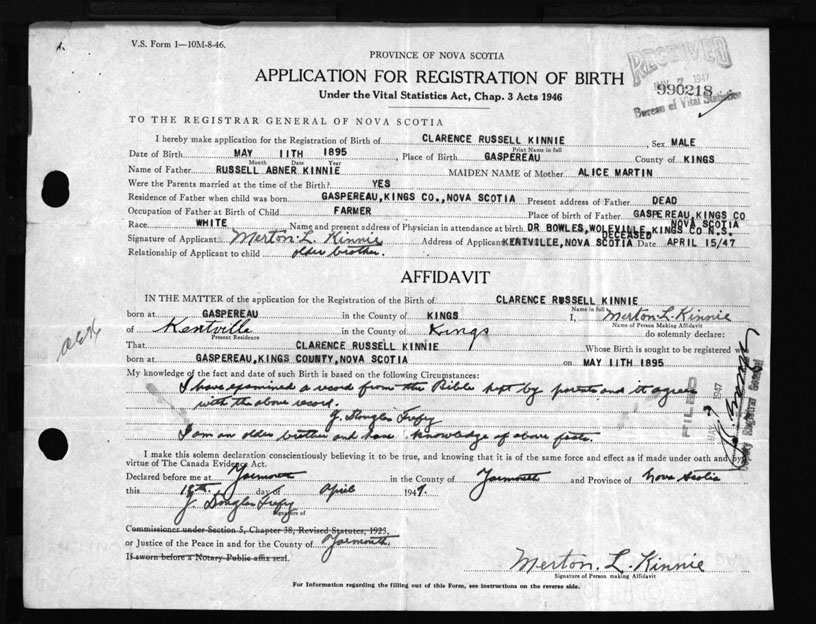 V.S. Form 1—10M-8-46.
PROVINCE OF NOVA SCOTIA
APPLICATION FOR REGISTRATION OF BIRTH
Under the Vital Statistics Act, Chap. 3 Acts 1946
RECEIVED
7 1947
990218
Bureau of Vital Statistics
TO THE REGISTRAR GENERAL OF NOVA SCOTIA
I hereby make application for the Registration of Birth of CLARENCE RUSSELL KINNIE, Sex MALE
Print Name in full
Date of Birth MAY 11TH 1895, Place of Birth GASPEREAU County of KINGS
Month Date Year
Name of Father RUSSELL ABNER KINNIE MAIDEN NAME of Mother ALICE MARTIN
Were the Parents married at the time of the Birth? YES
Residence of Father when child was born GASPEREAU,KINGS CO.,NOVA SCOTIA Present address of Father DEAD
Occupation of Father at Birth of Child FARMER Place of birth of Father GASPEREAU,KINGS CO
NOVA SCOTIA
Race WHITE Name and present address of Physician in attendance at birth DR BOWLES,WOLFVILLE,KINGS CO N.S.
DECEASED
Signature of Applicant Merton L. Kinnie Address of Applicant KENTVILLE,NOVA SCOTIA Date APRIL 15/47
Relationship of Applicant to child older brother.
AFFIDAVIT
IN THE MATTER of the application for the Registration of the Birth of CLARENCE RUSSELL KINNIE
Name in full
born at GASPEREAU in the County of KINGS I, Merton L. Kinnie
Name of Person Making Affidavit
of Kentville in the County of Kings do solemnly declare:
Present Residence
That CLARENCE RUSSELL KINNIE Whose Birth is sought to be registered was
born at GASPEREAU,KINGS COUNTY,NOVA SCOTIA on MAY 11TH 1895
My knowledge of the fact and date of such Birth is based on the following Circumstances:
I have examined a record from the Bible kept by parents and it agrees
with the above record.
J. Douglas
I am an older brother and have knowledge of above facts.
FILED
1947
Deputy Registrar General
I make this solemn declaration conscientiously believing it to be true, and knowing that it is of the same force and effect as if made under oath and by
virtue of The Canada Evidence Act.
Declared before me at Yarmouth in the County of Yarmouth and Province of Nova Scotia
this day of April 1947.
J. Douglas
Signature of
Commissioner under Section 5, Chapter 38, Revised Statutes, 1923.
or Justice of the Peace in and for the County of Yarmouth
If sworn before a Notary Public affix seal.
Merton. L. Kinnie
Signature of Person making Affidavit
For Information regarding the filling out of this Form, see instructions on the reverse side.